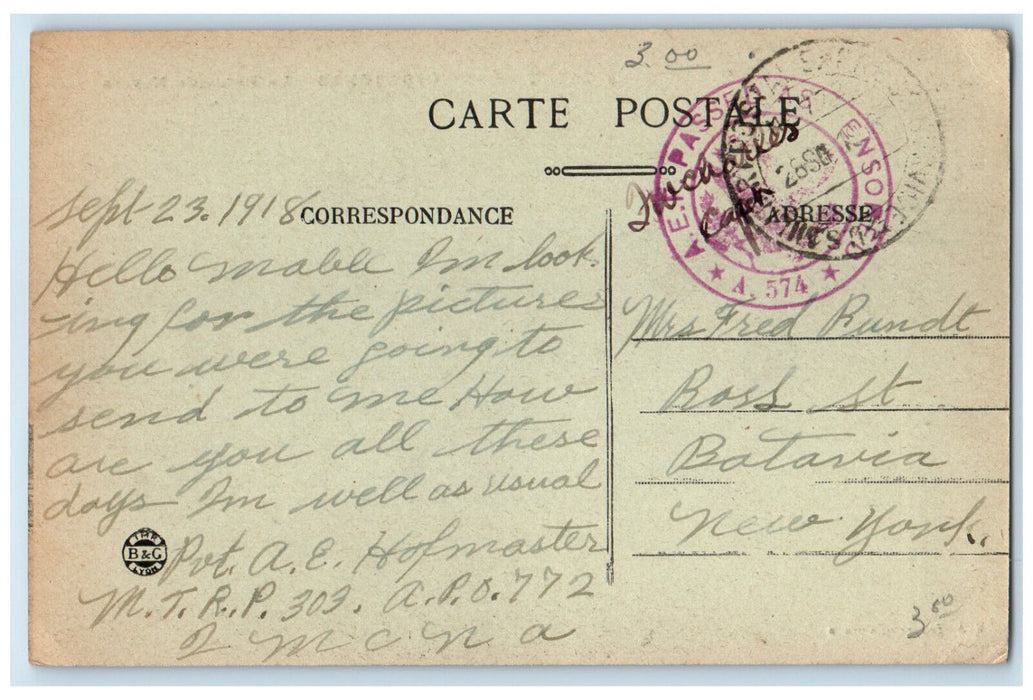 3.00
CARTE POSTALE
A.E.F. PASSED AS CENSORED
A. 574
28 SEP
Sept 23. 1918
CORRESPONDANCE
ADRESSE
Hello Mable Im look
ing for the pictures
you were going to
send to me How
are you all these
days Im well as usual
Pvt. A. E. Hofmaster
M. T. R. P. 303. A.P.O. 772
Q M C N A
IMP.
B & G
LYON
Mrs Fred Rundt
Ross St
Batavia
New York.
3.00